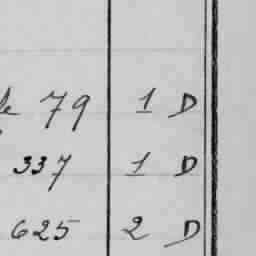 79 1 D
337 1 D
625 2 D